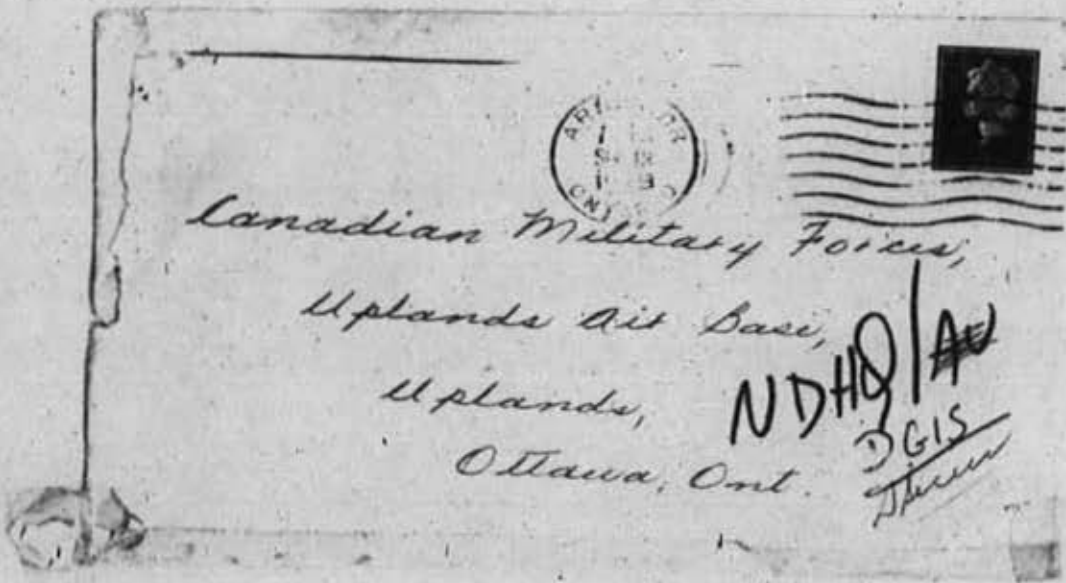 Canadian Military Forces,
Uplands Air Base,
Uplands,
Ottawa, Ont.
NDHQ/
DGIS